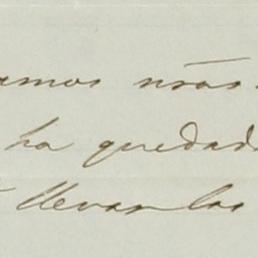 amos nr̃as
ha quedad
llevarlas